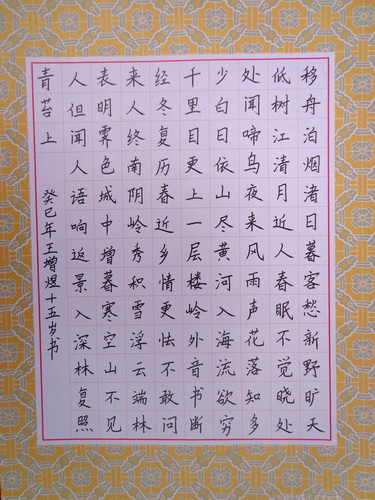 移舟泊烟渚日暮客愁新野旷天
低树江清月近人春眠不觉晓处
处闻啼鸟夜来风雨声花落知多
少白日依山尽黄河入海流欲穷
千里目更上一层楼岭外音书断
经冬复历春近乡情更怯不敢问
来人终南阴岭秀积雪浮云端林
表明霁色城中增暮寒空山不见
人但闻人语响返景入深林复照
青苔上
癸巳年王增煜十五岁书